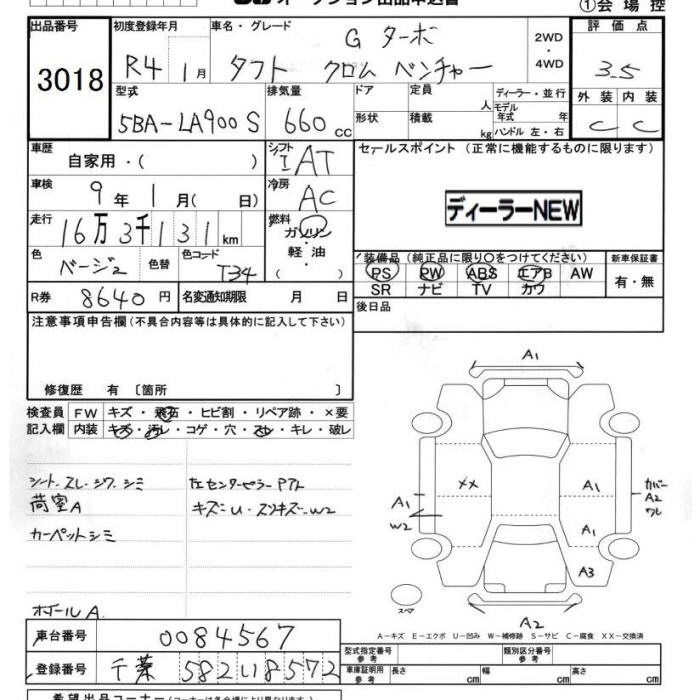 オークション出品申込書
①会場控
出品番号
3018
初度登録年月
R4 1月
車名・グレード
G ターボ
タフト クロム ベンチャー
2WD
・
4WD
評価点
3.5
型式
5BA-LA900S
排気量
660cc
ドア
形状
定員
人
積載
kg
ディーラー・並行
モデル
年式 年
ハンドル 左・右
外装 内装
C C
車歴
自家用・( )
シフト
I AT
セールスポイント (正常に機能するものに限ります)
車検
9年 1月( 日)
冷房
AC
ディーラーNEW
走行
16万3千131km
燃料
ガソリン
・
軽油
( )
色
ベージュ
色替
色コード
T34
装備品 (純正品に限り〇をつけてください)
PS PW ABS エアB AW
SR ナビ TV カワ
新車保証書
有・無
R券
8640円
名変通知期限 月 日
後日品
注意事項申告欄(不具合内容等は具体的に記入して下さい)
修復歴 有 〔箇所 〕
検査員
記入欄
FW キズ・飛石・ヒビ割・リペア跡・×要
内装 キズ・汚レ・コゲ・穴・スレ・キレ・破レ
シート スレ・シワ・シミ
荷室A
カーペットシミ
ホイールA
左センターピラーアト
キズ=U・スリキズ=W2
A1
A1
W2
XX
A1
A1
A3
カバー
A2
ワレ
スペア
A2
A-キズ E-エクボ U-凹み W-補修跡 S-サビ C-腐食 XX-交換済
車台番号
0084567
型式指定番号
参考
類別区分番号
参考
登録番号
千葉 582い8572
車庫証明用
参考
長さ cm
幅 cm
高さ cm
希望出品コーナー